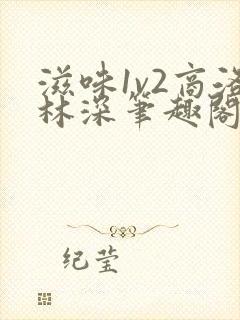 滋味1v2高洛
林深笔趣阁
纪莹